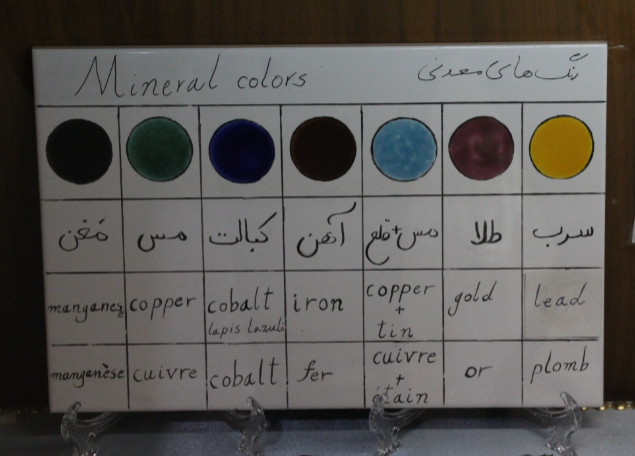 Mineral colors رنگ‌های معدنی
مَغن مس کبالت آهن مس+قلع طلا سرب
manganez copper cobalt iron copper + tin gold lead
lapis lazuli
manganèse cuivre cobalt fer cuivre + étain or plomb